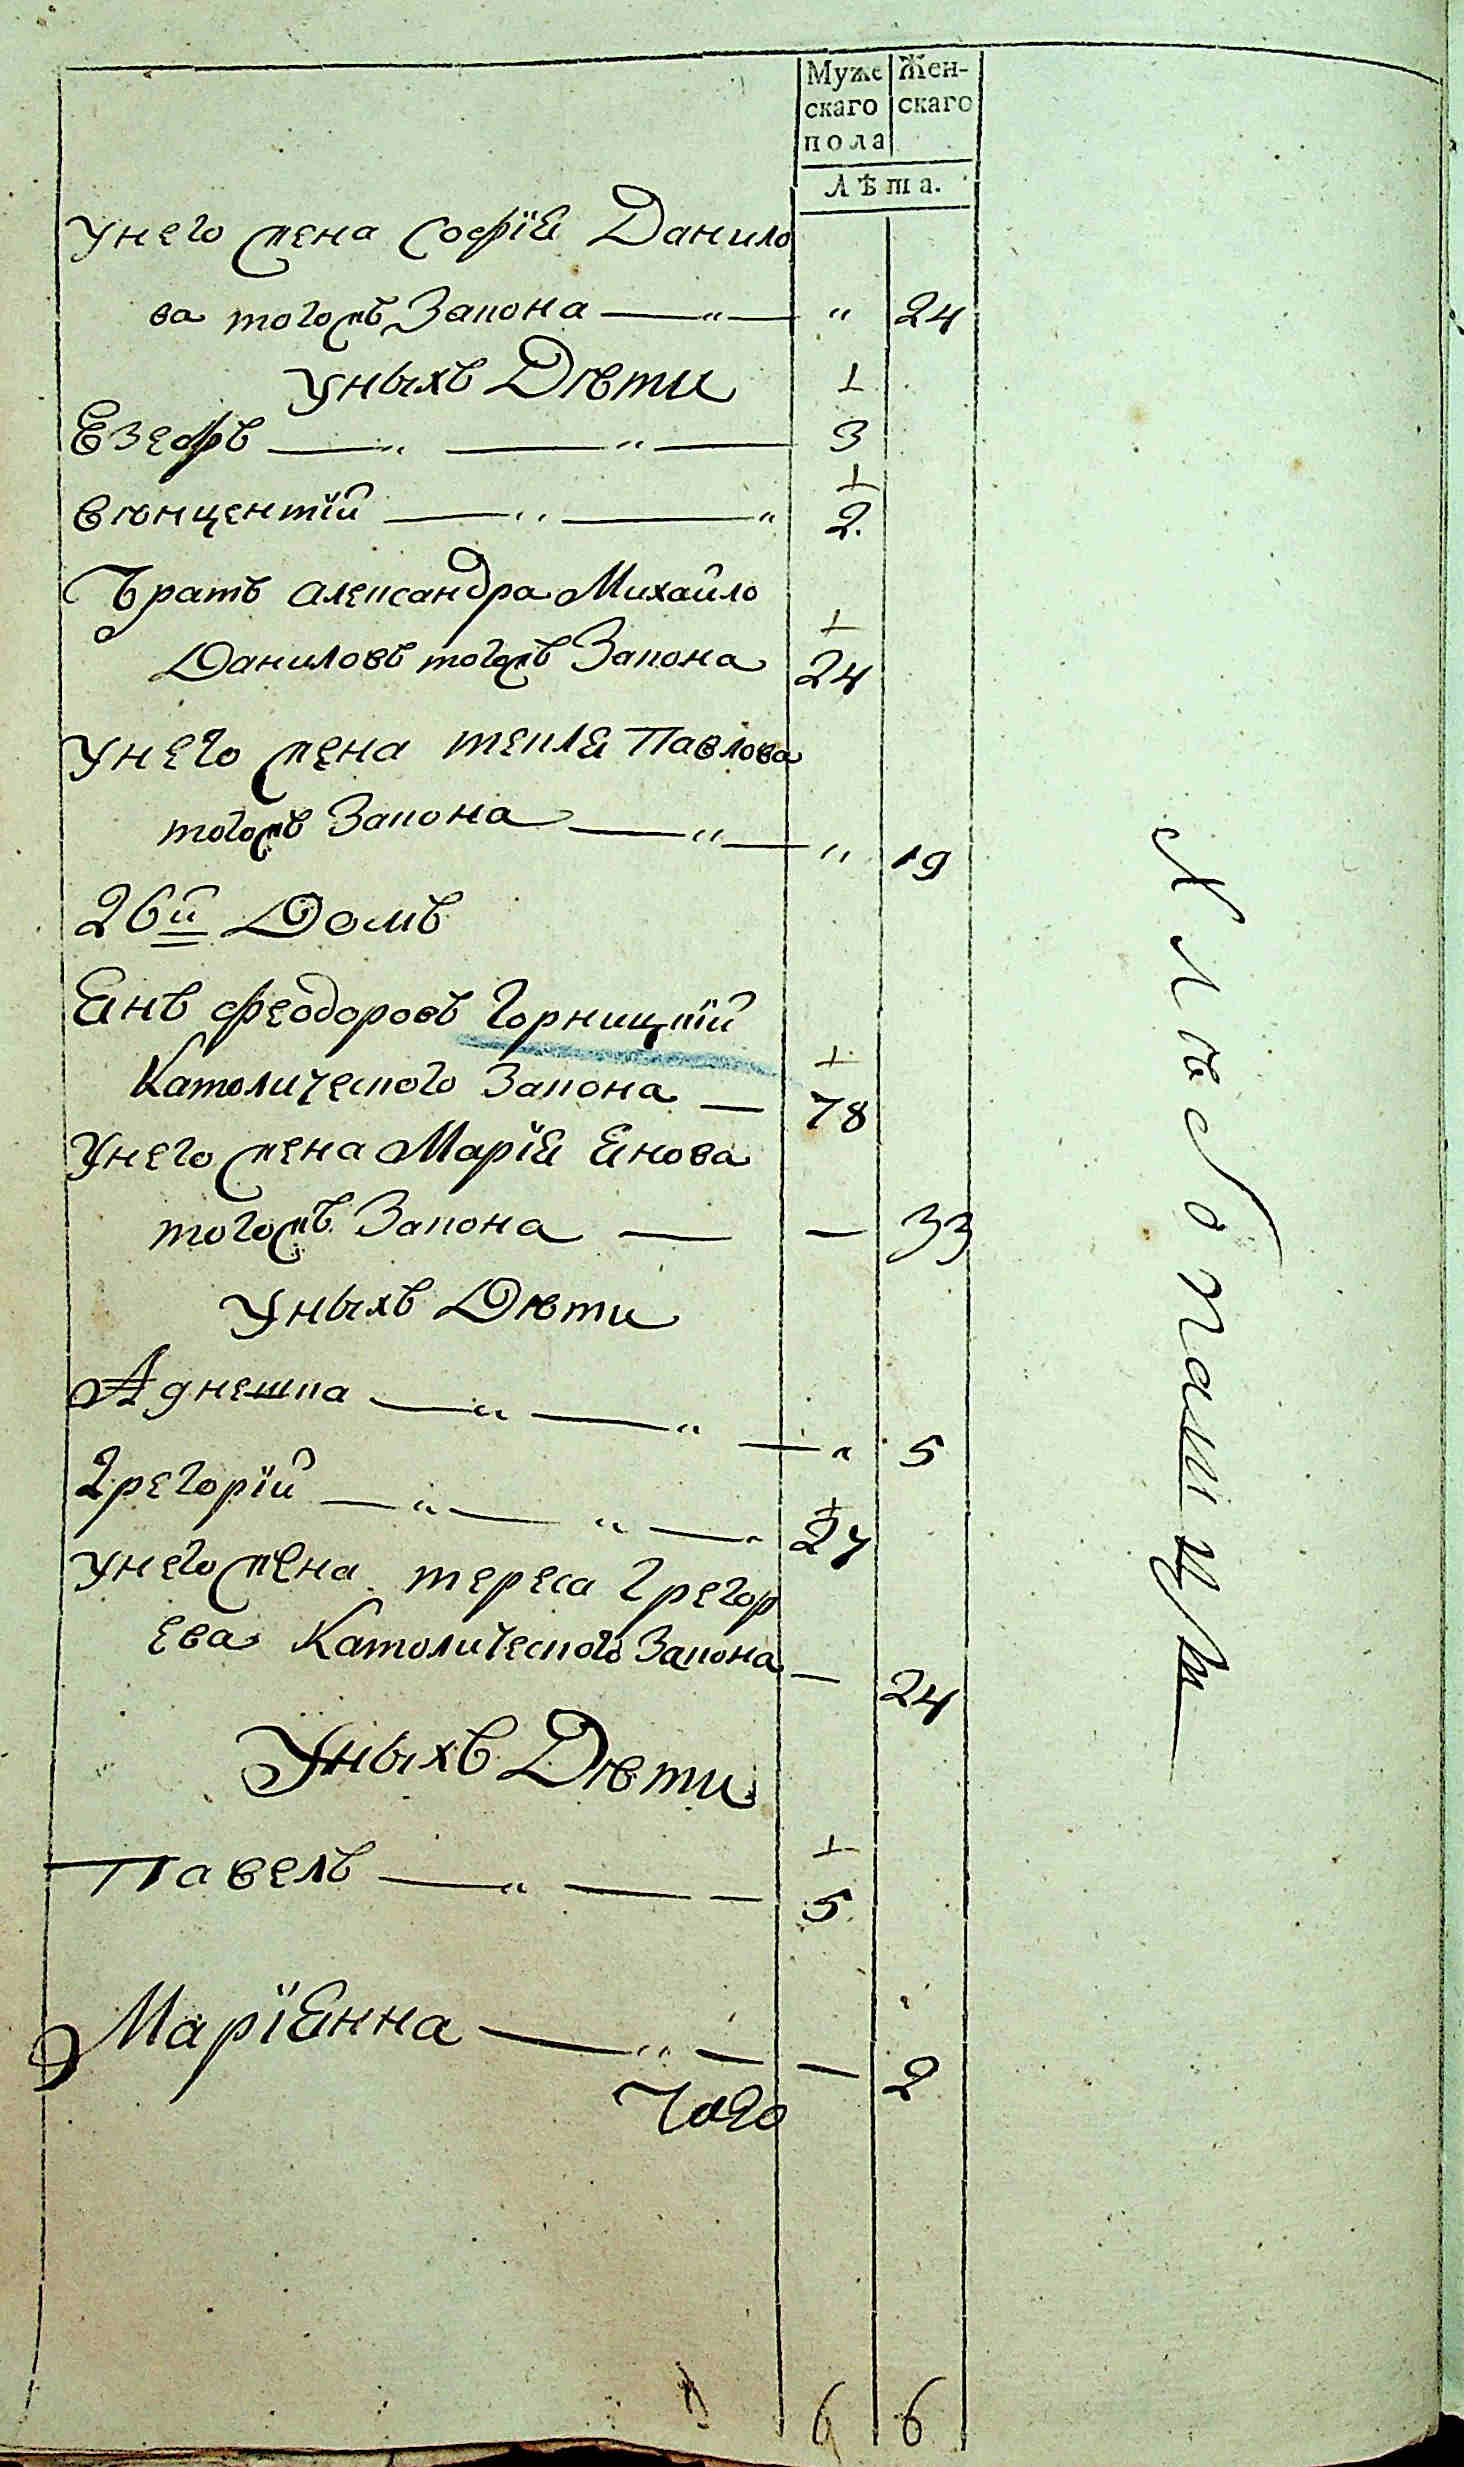 Муже Жен-
скаго скаго
пола
Лѣта.
унего жена Софїя Данило
ва тогожъ Закона — " — " 24
уныхъ Дѣти 1
Езефъ — " — " — 3
1
вѣнцентїй — " — " 2.
Братъ Александра Михайло
1
Даниловъ тогожъ Закона 24
унего жена текля Павлова
тогожъ Закона — " — " 19
26й Домъ
Янъ Феодоровъ Горницкїй
1
Католического Закона — 78
Унего жена Марїя Янова
тогожъ Закона — — 33
уныхъ Дѣти
Агнешка — " — " — " 5
1
Грегорїй — " — " — " 27
унего жена тереса Грегор
ева Католического Закона — 24
Уныхъ Дѣти
1
Павелъ — " — — 5
Марїянна — " — — 2
Того
6 6